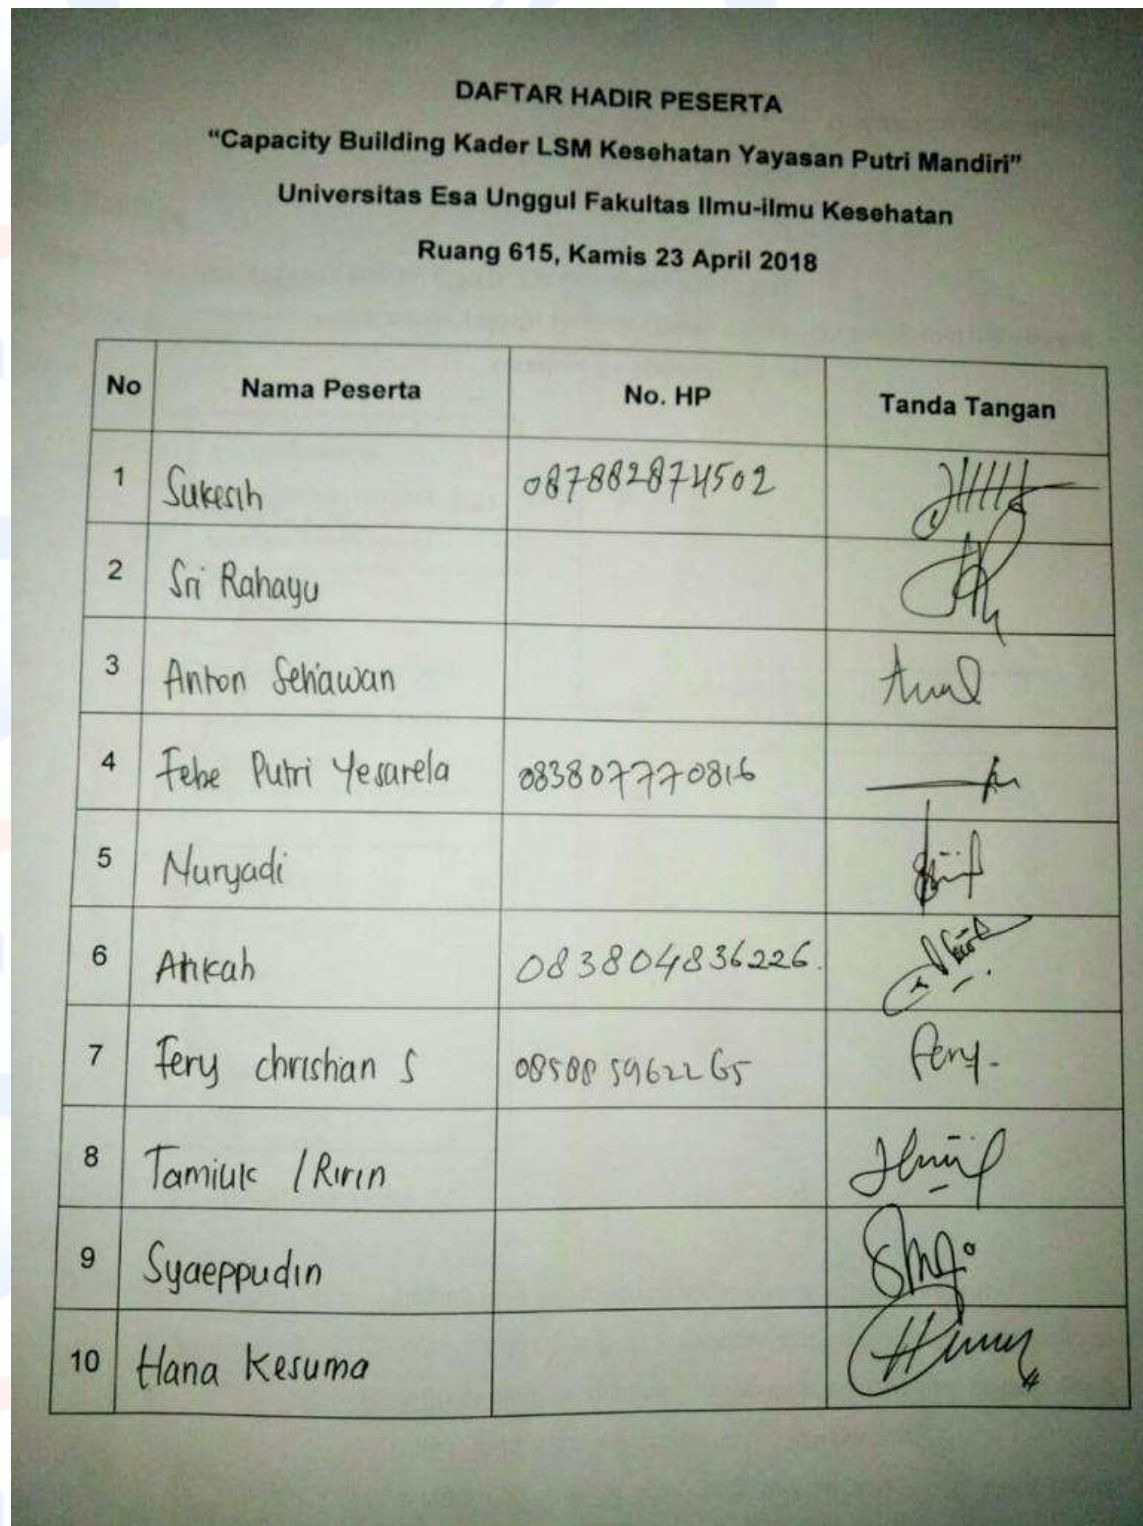 DAFTAR HADIR PESERTA
“Capacity Building Kader LSM Kesehatan Yayasan Putri Mandiri”
Universitas Esa Unggul Fakultas Ilmu-ilmu Kesehatan
Ruang 615, Kamis 23 April 2018
No Nama Peserta No. HP Tanda Tangan
1 Sukesih 087882874502
2 Sri Rahayu
3 Anton Setiawan
4 Febe Putri Yesarela 083807770816
5 Nuryadi
6 Atikah 083804836226.
7 Fery christian S 085885962265 Fery-
8 Tamiuk / Ririn
9 Syaeppudin
10 Hana Kesuma